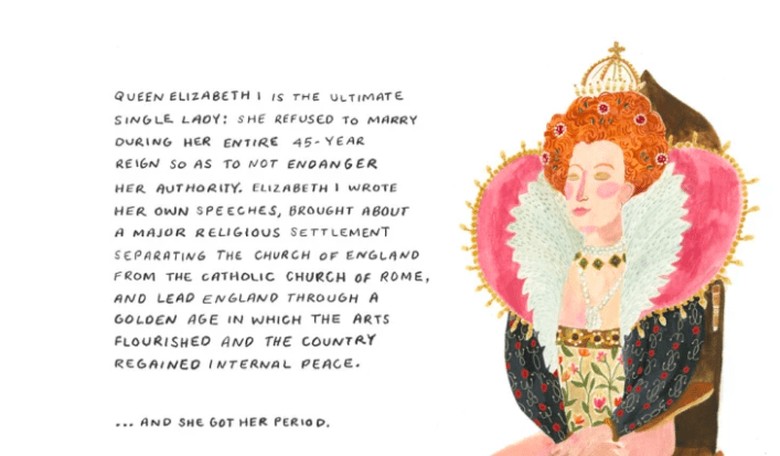 QUEEN ELIZABETH I IS THE ULTIMATE
SINGLE LADY: SHE REFUSED TO MARRY
DURING HER ENTIRE 45-YEAR
REIGN SO AS TO NOT ENDANGER
HER AUTHORITY. ELIZABETH I WROTE
HER OWN SPEECHES, BROUGHT ABOUT
A MAJOR RELIGIOUS SETTLEMENT
SEPARATING THE CHURCH OF ENGLAND
FROM THE CATHOLIC CHURCH OF ROME,
AND LEAD ENGLAND THROUGH A
GOLDEN AGE IN WHICH THE ARTS
FLOURISHED AND THE COUNTRY
REGAINED INTERNAL PEACE.
... AND SHE GOT HER PERIOD.